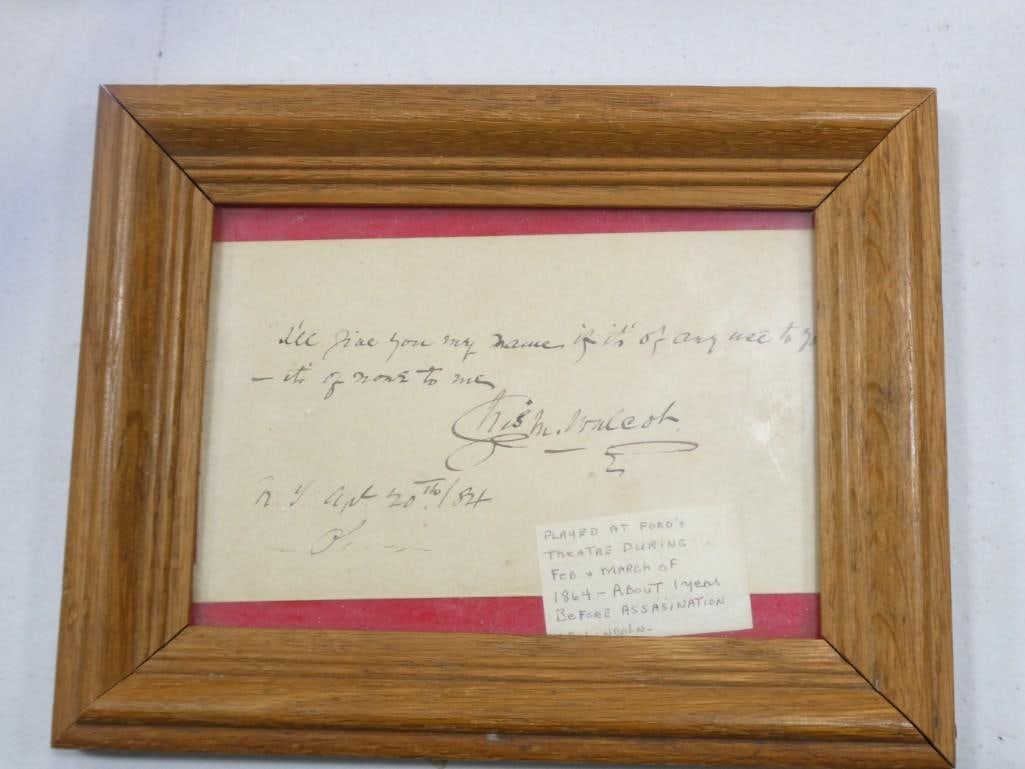 I'll give you my name if it's of any use to yo
– it's of none to me
Chas M. Walcot.
N. Y. Apl 20th /84
PLAYED AT FORD'S
THEATRE DURING
FEB. & MARCH OF
1864 – ABOUT 1 year
BEFORE ASSASINATION
OF LINCOLN–